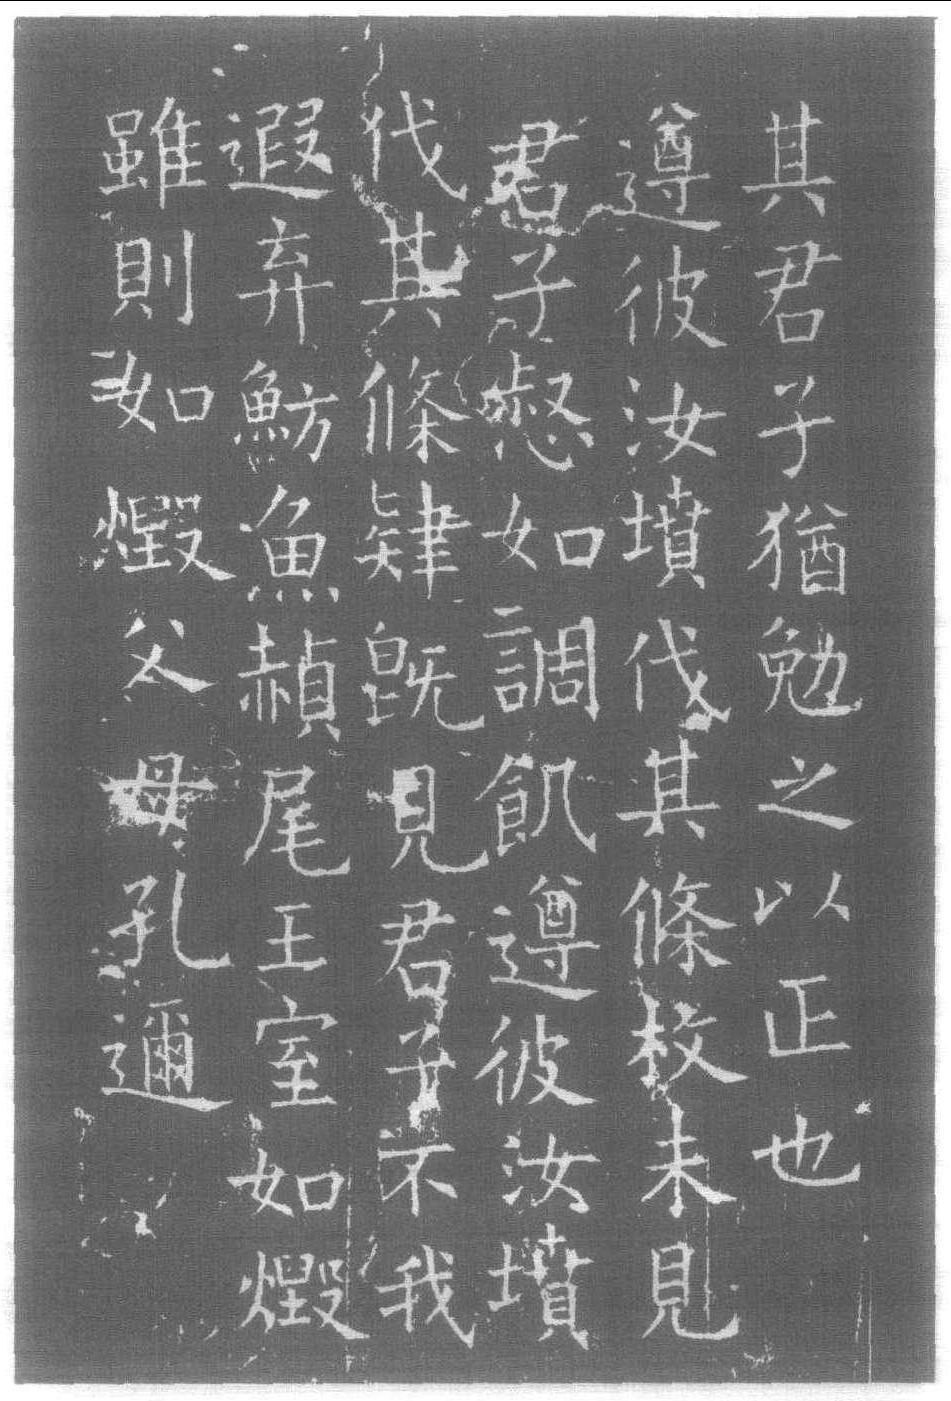 其君子猶勉之以正也
遵彼汝墳伐其條枚未見
君子惄如調飢遵彼汝墳
伐其條肄旣見君子不我
遐弃魴魚赬尾王室如燬
雖則如燬父母孔邇